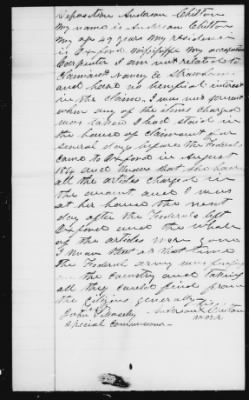 Deposition Anderson Chilton
My name is Anderson Chilton
My age 49 years My residence
is Oxford Mississippi My occupation
Carpenter I am not related to
Claimant Nancy E
and have no beneficial interest
in the Claim. I was not present
when any of the items charged
was taken I had staid in
the house of Claimant for
several days before the Federals
came to Oxford in August
1864 and know that she had
all the articles charged in
the account and I was
at her house the next
day after the Federals left
Oxford and the whole
of the articles were gone
I know that at that time
the Federal army was
the country and taking
all they could find from
the Citizens generally
John Anderson Chilton
Special Commissioner mark